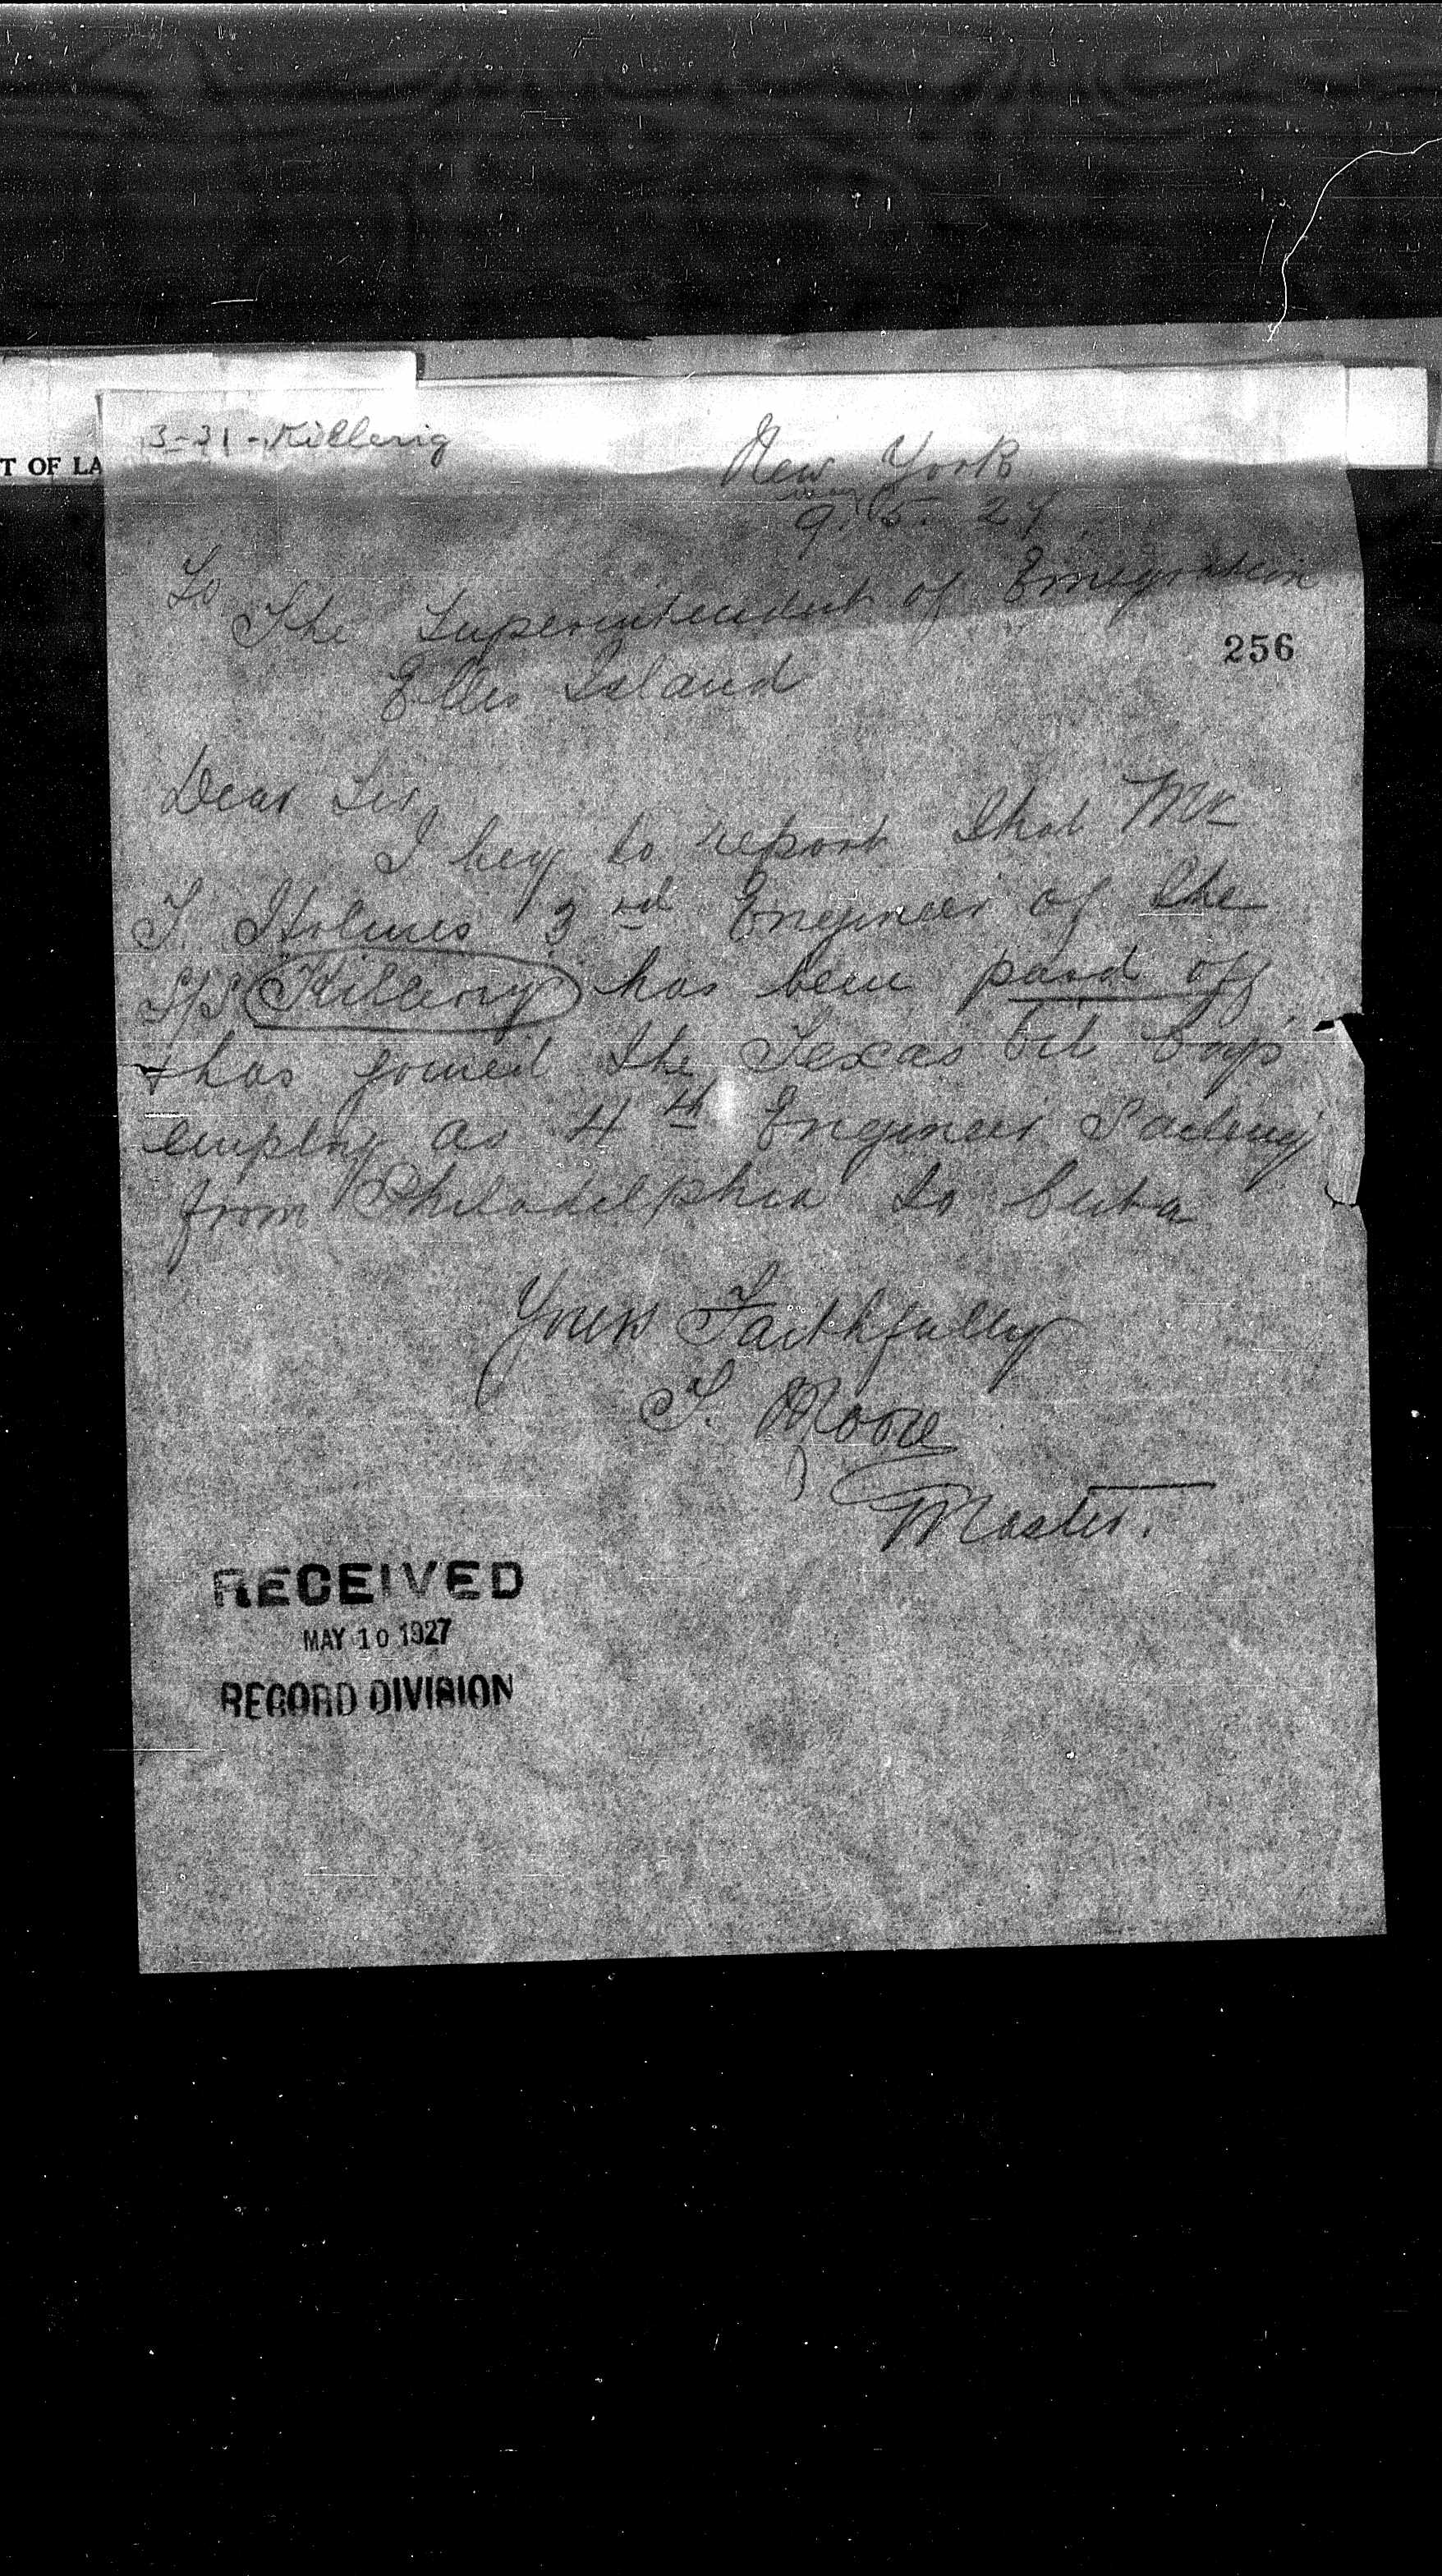 3-31-Killerig
T OF LA
New York
May
9. 5. 27
To
The Superintendent of Emegration
256
Ellis Island
Dear Sir,
I beg to report that Mr
T. Holmes 3rd Engineer of the
S/S Killerig has been paid off
+ has joined the Texas Oil Coys
employ as 4th Engineer Sailing
from Philadelphia to Cuba
Yours Faithfully
T. Moore
Master.
RECEIVED
MAY 10 1927
RECORD DIVISION